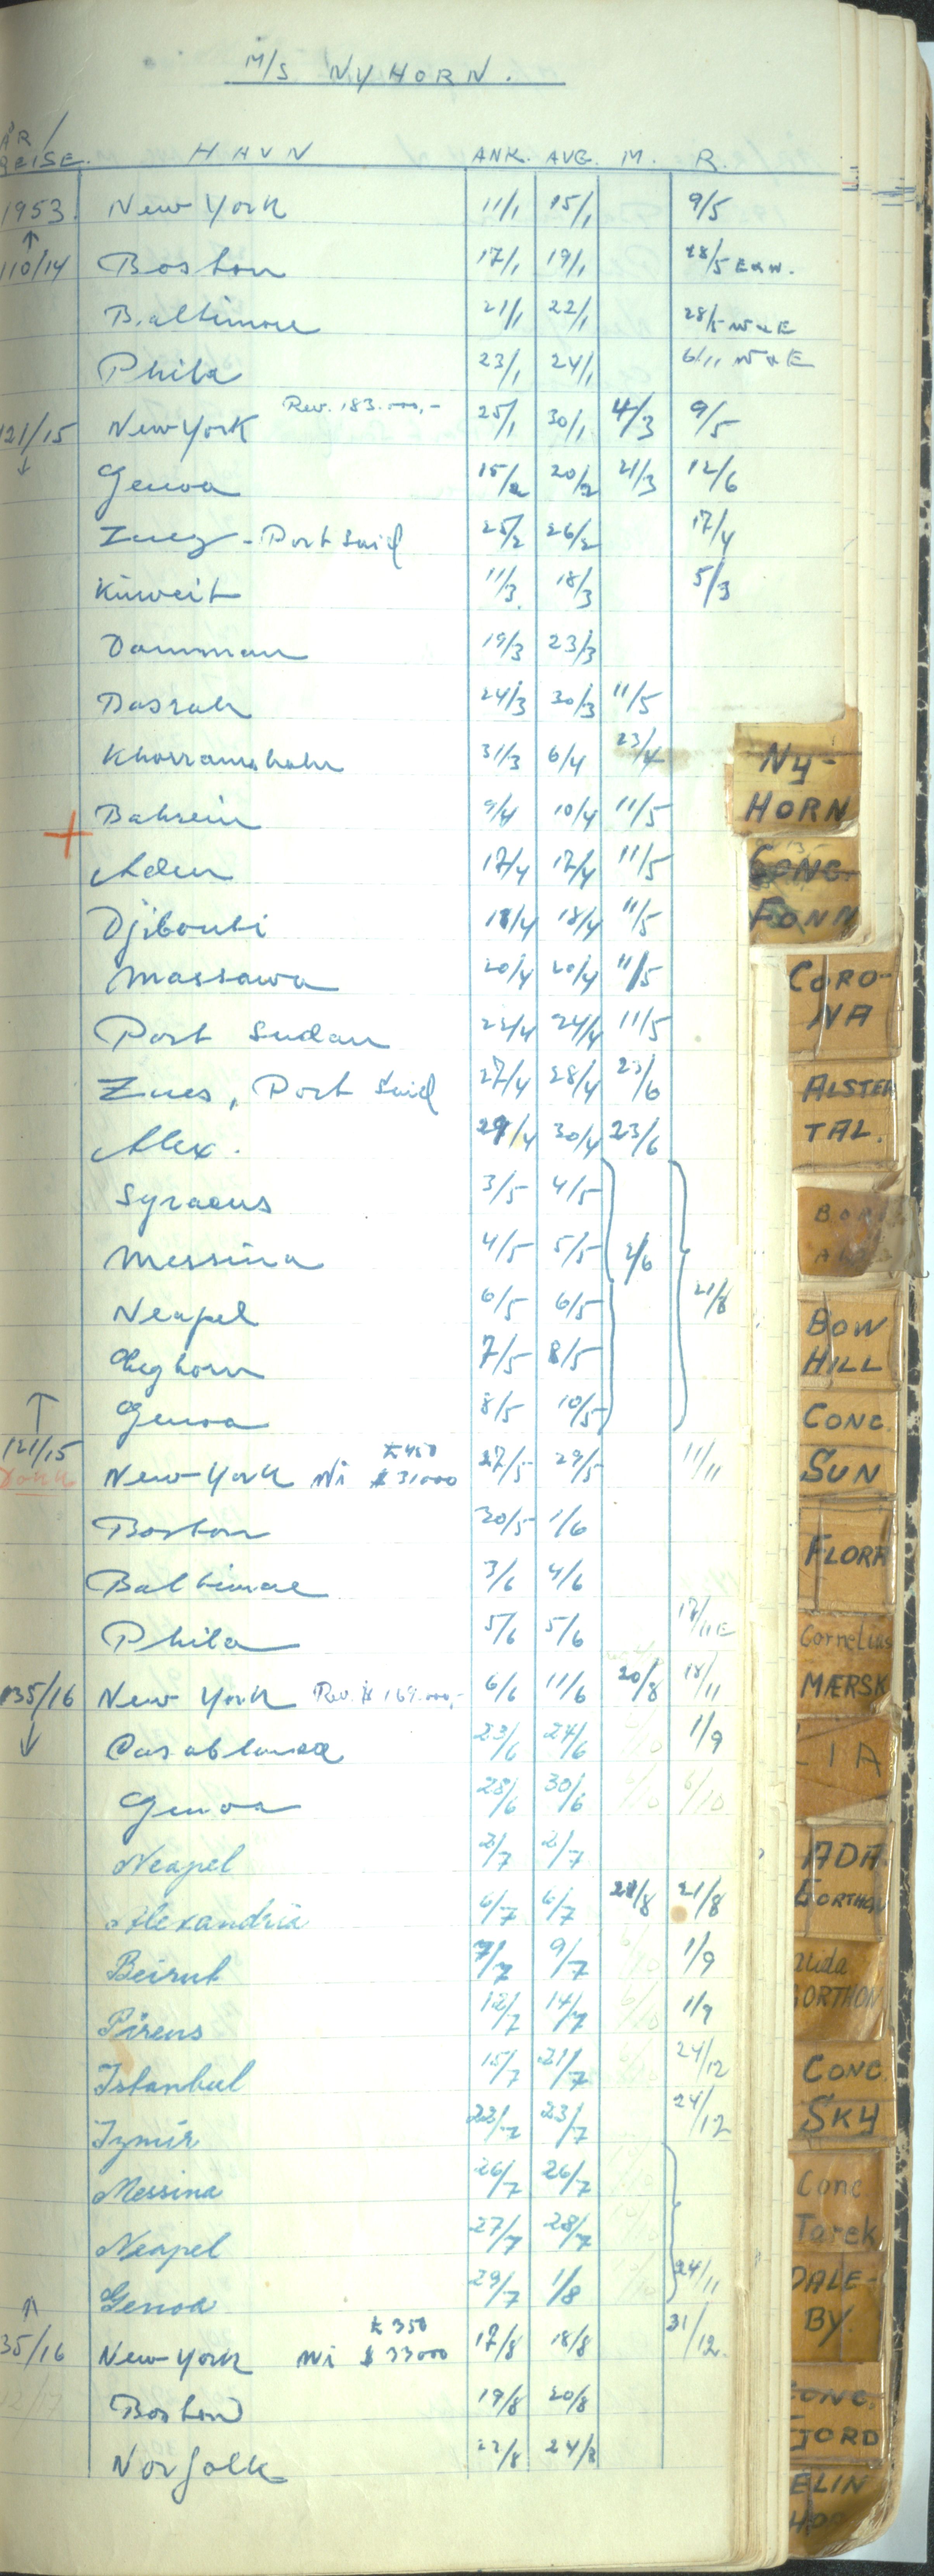 M/S NYHORN.
ÅR/
REISE. HAVN ANK. AVG. M. R.
1953. New York 11/1 15/1 9/5
↑
110/14 Boston 17/1 19/1 28/5 E&W.
Baltimore 21/1 22/1 28/5 W&E
Phila 23/1 24/1 6/11 W&E
Rev. 183.000,-
121/15 New York 25/1 30/1 4/3 9/5
↓
Genoa 15/2 20/2 21/3 12/6
Zuez - Port Said 25/2 26/2 17/4
Kuweit 11/3 18/3 5/3
Damman 19/3 23/3
Basrah 24/3 30/3 11/5
Khorramshahr 31/3 6/4 23/4
+ Bahrein 9/4 10/4 11/5
Aden 17/4 17/4 11/5
Djibouti 18/4 18/4 11/5
Massawa 20/4 20/4 11/5
Port Sudan 22/4 24/4 11/5
Zues, Port Said 27/4 28/4 23/6
Alex. 29/4 30/4 23/6
Syracus 3/5 4/5
Messina 4/5 5/5 2/6
Neapel 6/5 6/5 21/8
Leghorn 7/5 8/5
↑ Genoa 8/5 10/5
121/15 £450
Dokk New York Wi $ 31000 27/5 29/5 11/11
Boston 30/5 1/6
Baltimore 3/6 4/6
Phila 5/6 5/6 17/11 E
135/16 New York Rev. $ 169.000,- 6/6 11/6 20/8 18/11
↓ Casablanca 23/6 24/6 1/9
Genoa 28/6 30/6 6/10
Neapel 2/7 2/7
Alexandria 6/7 6/7 21/8 21/8
Beirut 7/7 9/7 1/9
Pireus 12/7 14/7 1/9
Istanbul 15/7 21/7 24/12
Izmir 22/7 23/7 24/12
Messina 26/7 26/7
Neapel 27/7 28/7
Genoa 29/7 1/8 24/11
↑ £ 350
35/16 New York Wi $ 33000 17/8 18/8 31/12.
Boston 19/8 20/8
Norfolk 22/8 24/8
NY-
HORN
CONC.
FONN
CORO-
NA
ALSTER
TAL.
BOW
HILL
CONC.
SUN
FLORA
Cornelius
MÆRSK
LIA
ADA
GORTHON
GORTHON
CONC.
SKY
Conc
Tarek
DALE-
BY.
CONC.
FJORD
ELIN